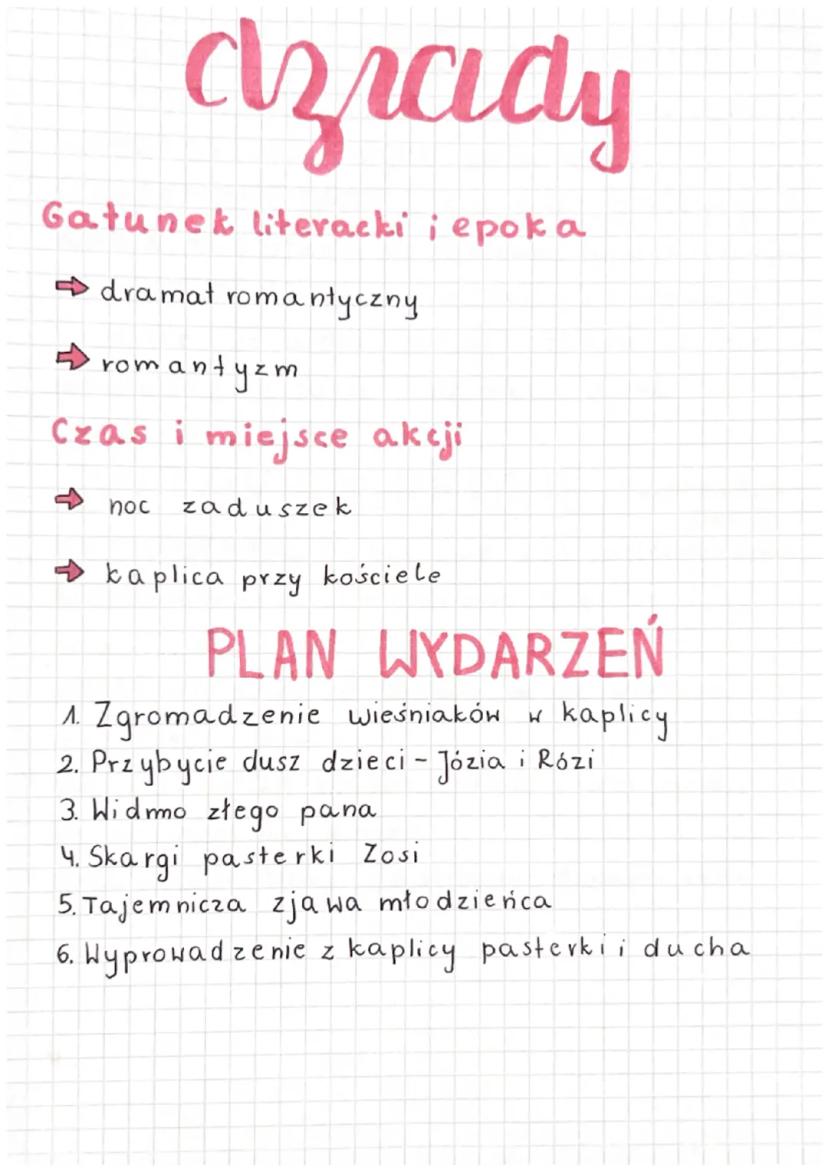 dziady
Gatunek literacki i epoka
dramat romantyczny
romantyzm
Czas i miejsce akcji
noc zaduszek
kaplica przy kościele
PLAN WYDARZEŃ
1. Zgromadzenie wieśniaków w kaplicy
2. Przybycie dusz dzieci - Józia i Rózi
3. Widmo złego pana
4. Skargi pasterki Zosi
5. Tajemnicza zjawa młodzieńca
6. Wyprowadzenie z kaplicy pasterki i ducha